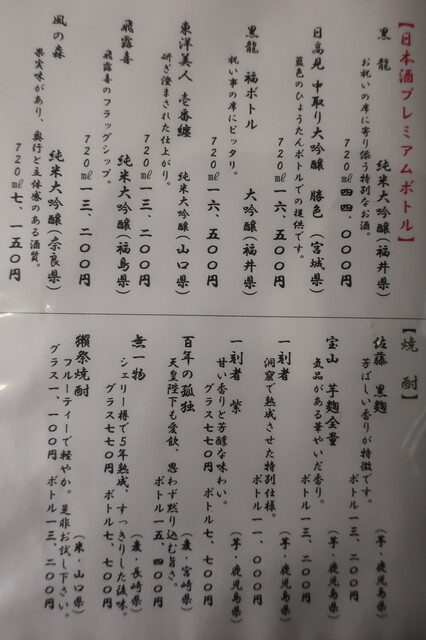 【日本酒プレミアムボトル】
黒龍 純米大吟醸(福井県)
お祝いの席に寄り添う特別なお酒。
720㎖ 四四、〇〇〇円
日高見 中取り大吟醸 勝色(宮城県)
藍色のひょうたんボトルでの提供です。
720㎖ 一六、五〇〇円
黒龍 福ボトル 大吟醸(福井県)
祝い事の席にピッタリ。
720㎖ 一六、五〇〇円
東洋美人 壱番纏 純米大吟醸(山口県)
研ぎ澄まされた仕上がり。
720㎖ 一三、二〇〇円
飛露喜 純米大吟醸(福島県)
飛露喜のフラッグシップ。
720㎖ 一三、二〇〇円
風の森 純米大吟醸(奈良県)
果実味があり、奥行と立体感のある酒質。
720㎖ 七、一五〇円
【焼酎】
佐藤 黒麹 (芋・鹿児島県)
芳ばしい香りが特徴です。
ボトル一三、二〇〇円
宝山 芋麹全量 (芋・鹿児島県)
気品がある華やいだ香り。
ボトル一三、二〇〇円
一刻者 (芋・鹿児島県)
洞窟で熟成させた特別仕様。
ボトル一一、〇〇〇円
一刻者 紫 (芋・鹿児島県)
甘い香りと芳醇な味わい。
グラス七七〇円 ボトル七、七〇〇円
百年の孤独 (麦・宮崎県)
天皇陛下も愛飲、思わず黙り込む旨さ。
ボトル一五、四〇〇円
無一物 (麦・長崎県)
シェリー樽で5年熟成、すっきりした後味。
グラス七七〇円 ボトル七、七〇〇円
獺祭焼酎 (米・山口県)
フルーティーで軽やか。是非お試し下さい。
グラス一、一〇〇円 ボトル一三、二〇〇円